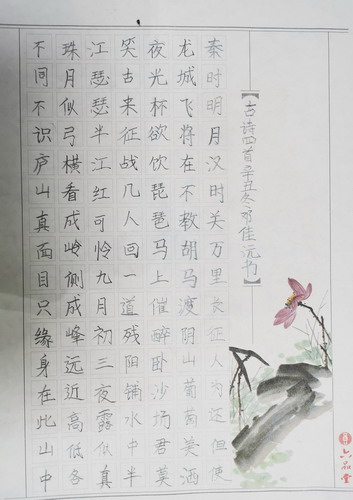 【古诗四首辛丑冬邓佳沅书】
秦时明月汉时关万里长征人为还但使
龙城飞将在不教胡马渡阴山葡萄美酒
夜光杯欲饮琵琶马上催醉卧沙场君莫
笑古来征战几人回一道残阳铺水中半
江瑟瑟半江红可怜九月初三夜露似真
珠月似弓横看成岭侧成峰远近高低各
不同不识庐山真面目只缘身在此山中
六品堂